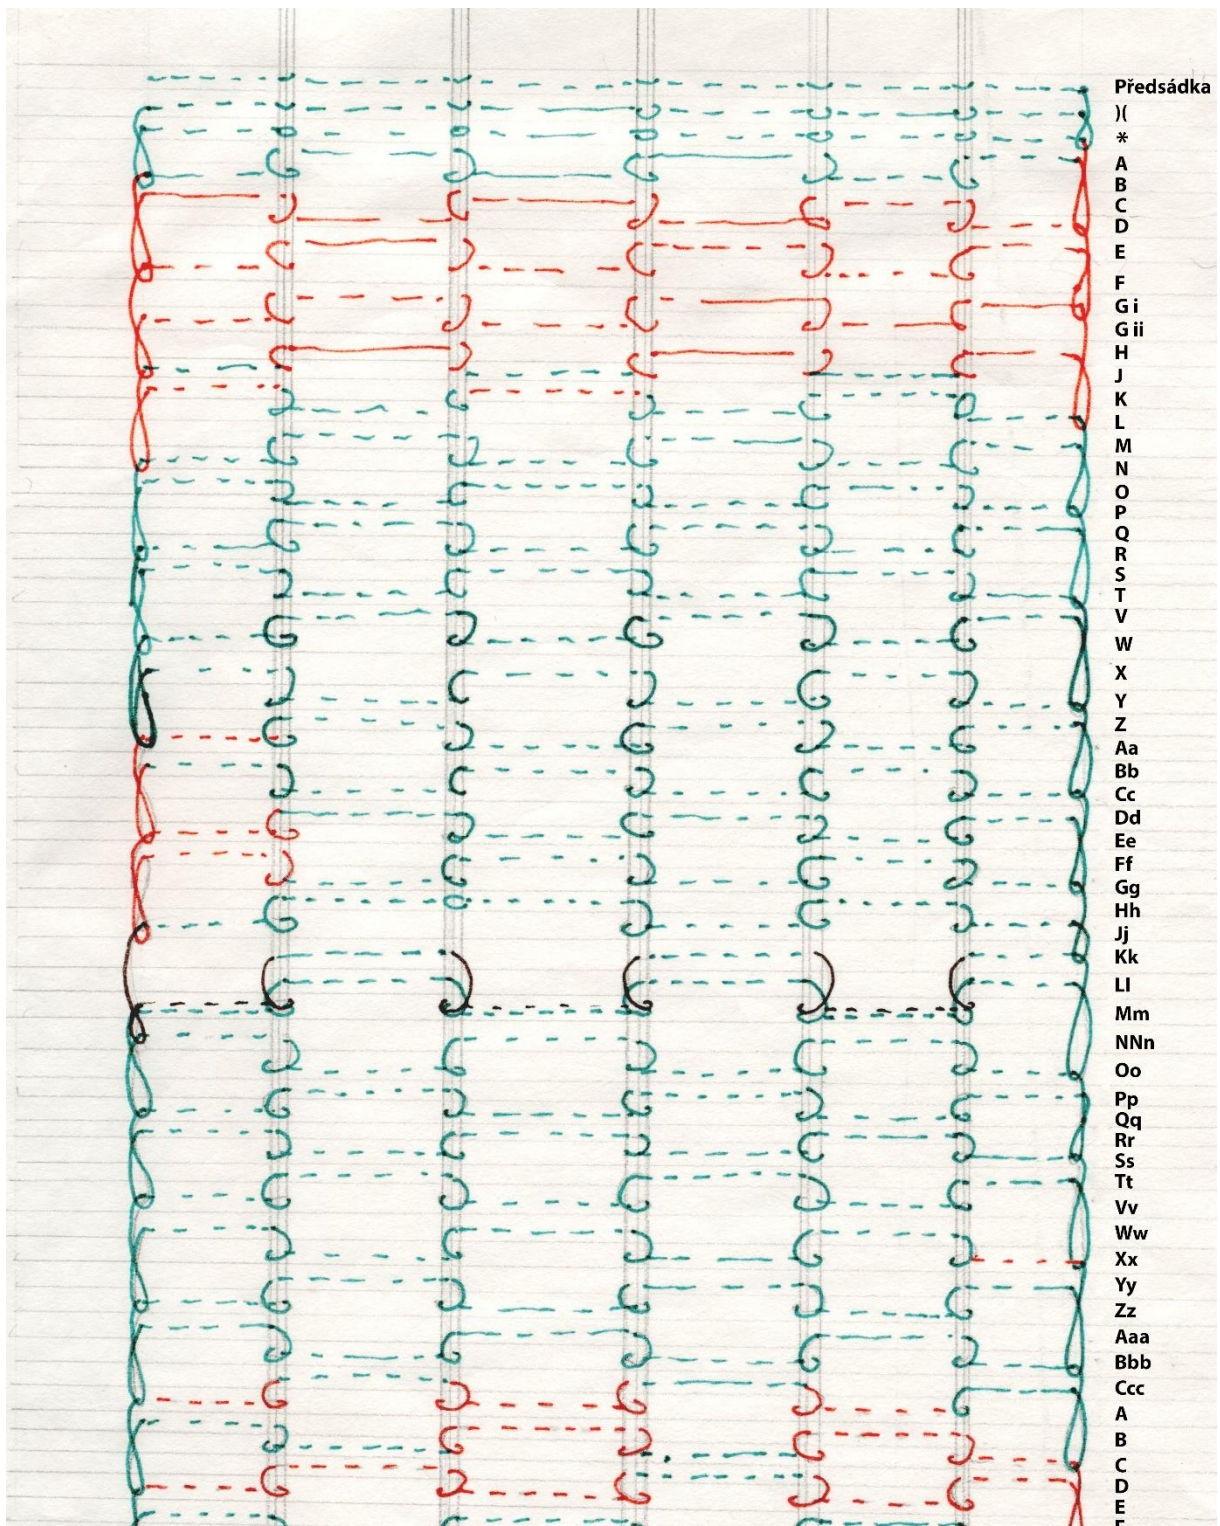 Předsádka
)(
*
A
B
C
D
E
F
G i
G ii
H
J
K
L
M
N
O
P
Q
R
S
T
V
W
X
Y
Z
Aa
Bb
Cc
Dd
Ee
Ff
Gg
Hh
Jj
Kk
Ll
Mm
NNn
Oo
Pp
Qq
Rr
Ss
Tt
Vv
Ww
Xx
Yy
Zz
Aaa
Bbb
Ccc
A
B
C
D
E